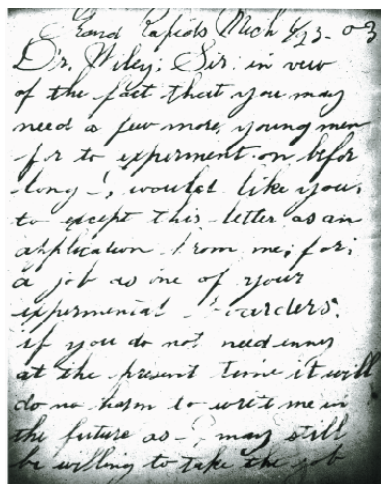 Grand Rapids Mich 6/23-03
Dr. Wiley; Sir; in vew
of the fact that you may
need a few more young men
for to experment on befor
long I, would like you,
to except this letter as an
application from me; for;
a job as one of your
expermenial Bourders.
if you do not need enny
at the present time it will
do no harm to write me in
the future as I may still
be willeng to take the job